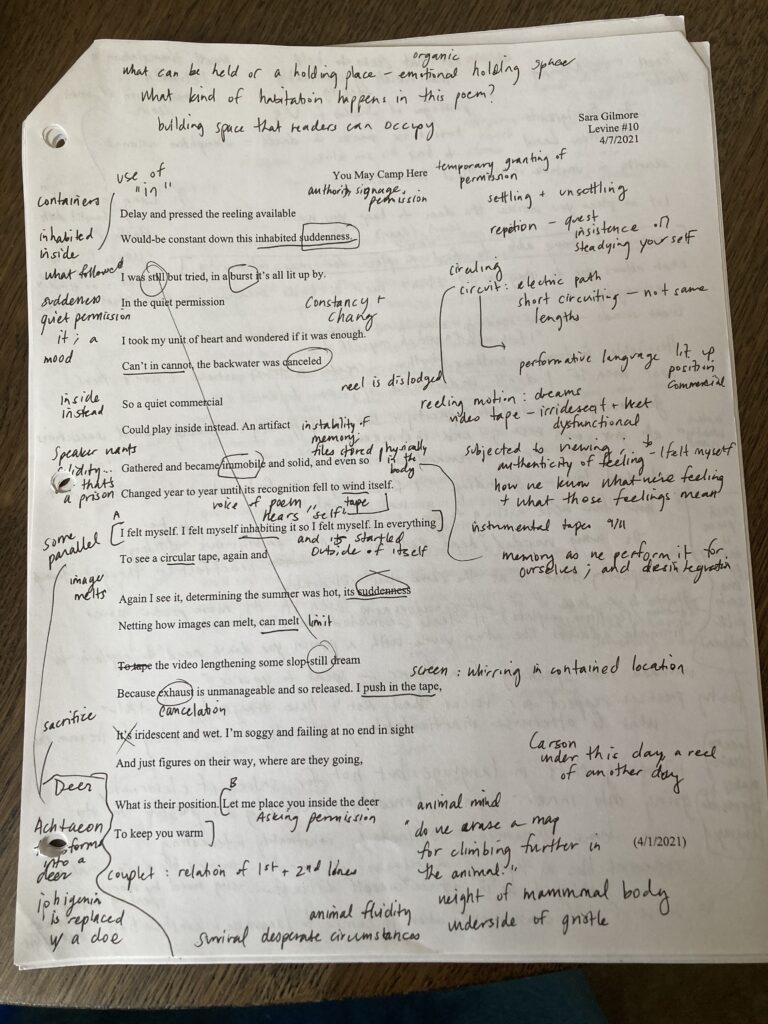 organic
what can be held or a holding place – emotional holding space
what kind of habitation happens in this poem?
building space that readers can occupy
Sara Gilmore
Levine #10
4/7/2021
use of
"in"
You May Camp Here
temporary granting of
permission
authority, signage,
permission
containers
settling + unsettling
Delay and pressed the reeling available
inhabited
inside
Would-be constant down this inhabited suddenness.
repetion – quest
insistence on
steadying yourself
what followed
I was still but tried, in a burst it's all lit up by.
circling
circuit: electric path
short circuiting – not same
lengths
suddeness
quiet permission
In the quiet permission
constancy +
chang
it; a
mood
I took my unit of heart and wondered if it was enough.
Can't in cannot, the backwater was canceled
performative language
lit up
position
commercial
reel is dislodged
inside
instead
So a quiet commercial
reeling motion: dreams
video tape – irrideseat + wet
dysfunctional
Could play inside instead. An artifact
instability of
memory:
files stored physically
in the
body
Speaker wants
that's
a prison
Gathered and became immobile and solid, and even so
subjected to viewing;
authenticity of feeling – I felt myself
how we know what we're feeling
+ what those feelings mean
Changed year to year until its recognition fell to wind itself.
voice of poem
hears "self"
tape
A
I felt myself. I felt myself inhabiting it so I felt myself. In everything
instrumental tapes 9/11
and its startled
outside of itself
some
parallel
To see a circular tape, again and
memory as we perform it for
ourselves; and disintegration
image
melts
Again I see it, determining the summer was hot, its suddenness
Netting how images can melt, can melt
limit
To tape the video lengthening some slop-still dream
screen: whirring in contained location
Because exhaust is unmanageable and so released. I push in the tape,
cancelation
sacrifice
It's iridescent and wet. I'm soggy and failing at no end in sight
And just figures on their way, where are they going,
Carson
under this day, a reel
of another day
Deer
B
What is their position. Let me place you inside the deer
Asking permission
animal mind
To keep you warm
"do we erase a map
for climbing further in
the animal."
(4/1/2021)
Achtaeon
into a
deer
couplet: relation of 1st + 2nd lines
iphigenia
is replaced
w/ a doe
animal fluidity
survival desperate circumstances
weight of mammal body
underside of gristle